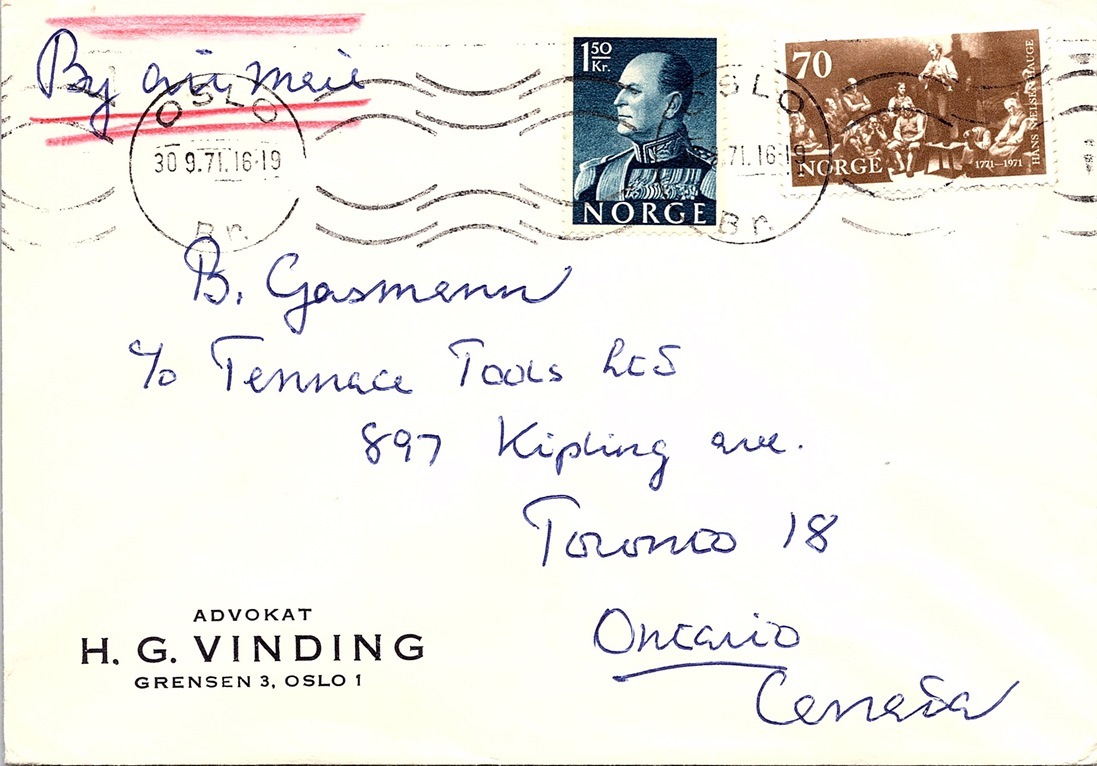 By air mail
OSLO
30 9.71.16-19
Br.
1 50 Kr.
NORGE
OSLO
.71.16-19
Br.
70
NORGE
1771-1971
HANS NIELSEN HAUGE
B. Gasmann
c/o Tennace Tools Ltd
897 Kipling ave.
Toronto 18
Ontario
Canada
ADVOKAT
H. G. VINDING
GRENSEN 3, OSLO 1